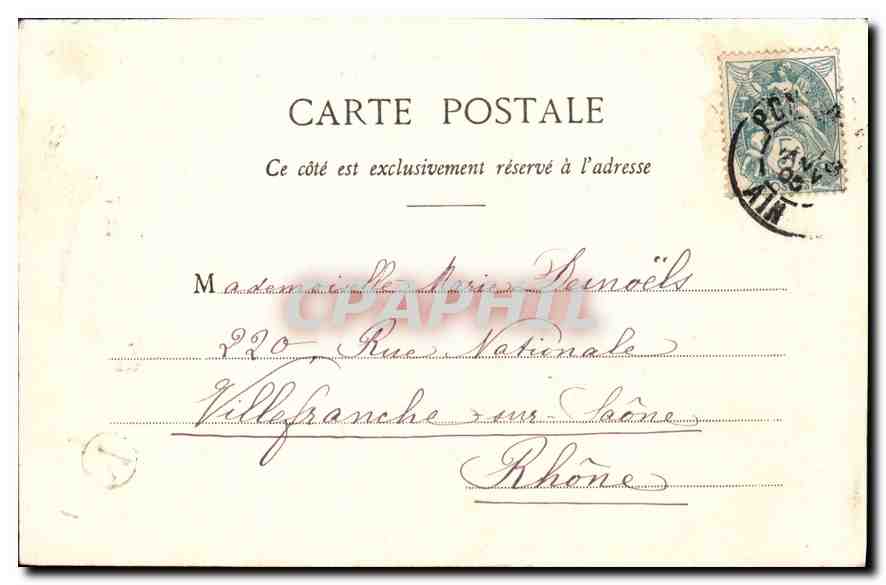 CARTE POSTALE
Ce côté est exclusivement réservé à l'adresse
Mademoiselle Marie Desnoëls
220, Rue Nationale
Villefranche-sur-Saône
Rhône
CPAPHIL
AIN